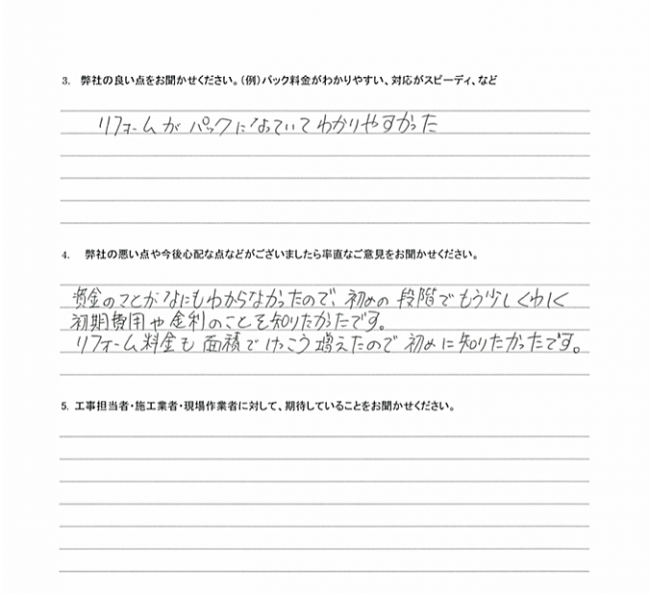 3. 弊社の良い点をお聞かせください。（例）パック料金がわかりやすい、対応がスピーディ、など
リフォームがパックになっていてわかりやすかった
4. 弊社の悪い点や今後心配な点などがございましたら率直なご意見をお聞かせください。
資金のことがなにもわからなかったので、初めの段階でもう少しくわしく
初期費用や金利のことを知りたかったです。
リフォーム料金も面積でけっこう増えたので初めに知りたかったです。
5. 工事担当者・施工業者・現場作業者に対して、期待していることをお聞かせください。